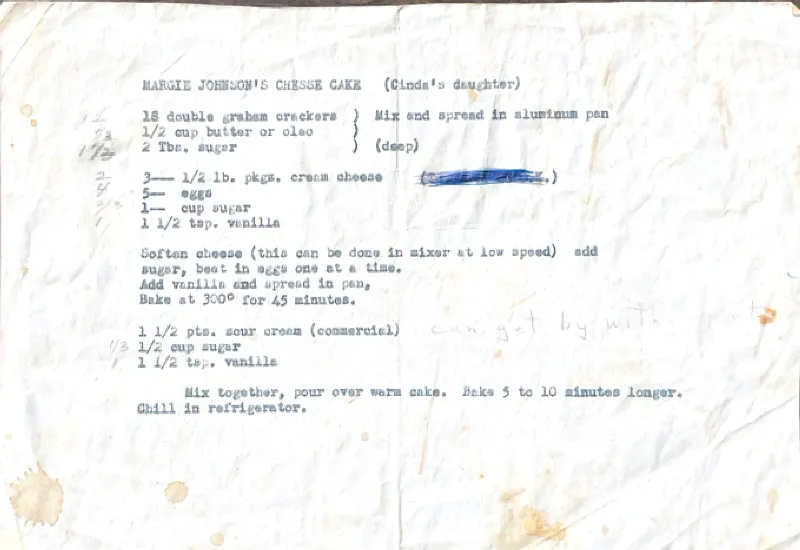 MARGIE JOHNSON'S CHESSE CAKE (Cinda's daughter)
12 18 double graham crackers ) Mix and spread in aluminum pan
1/3 1/2 cup butter or oleo )
2 Tbs. sugar ) (deep)
2 3-- 1/2 lb. pkgs. cream cheese
4 5-- eggs
1-- cup sugar
1 1 1/2 tsp. vanilla
Soften cheese (this can be done in mixer at low speed) add
sugar, beat in eggs one at a time.
Add vanilla and spread in pan,
Bake at 300° for 45 minutes.
1 1/2 pts. sour cream (commercial) can get by with
1/3 1/2 cup sugar
1 1 1/2 tsp. vanilla
Mix together, pour over warm cake. Bake 5 to 10 minutes longer.
Chill in refrigerator.